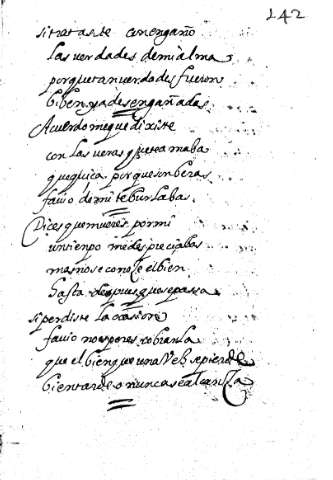 242
si trataste con engaño
las verdades de mi alma
porque tan verdades fueron
biben ya desengañadas
Acuerdome que dixiste
con las veras q̃ te amaba
que quiça porque sin beras
favio de mi te burlabas
Dices que mueres por mi
un tienpo me despreciabas
mas no se conoçe el bien
hasta despues que se passa
si perdiste la ocasion
favio no esperes cobrarla
que el bien que una vez se pierde
bien tarde o nunca se alcança